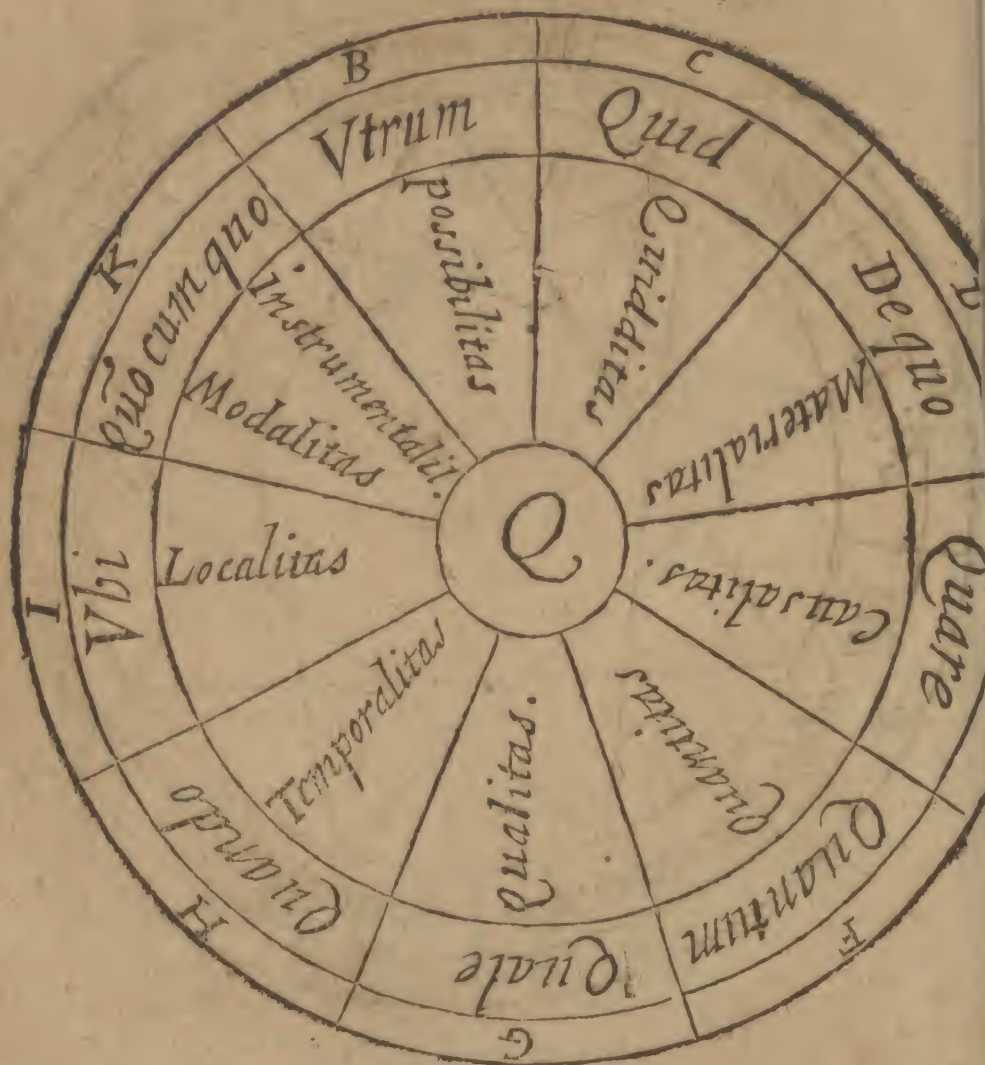 B
Vtrum
possibilitas
C
Quid
Quidditas
D
De quo
Materialitas
Quare
Causalitas.
F
Quantum
Quantitas
G
Quale
Qualitas.
H
Quando
Temporalitas
I
Vbi
Localitas
K
Quõ cum quo
instrumentalit.
Modalitas
Q